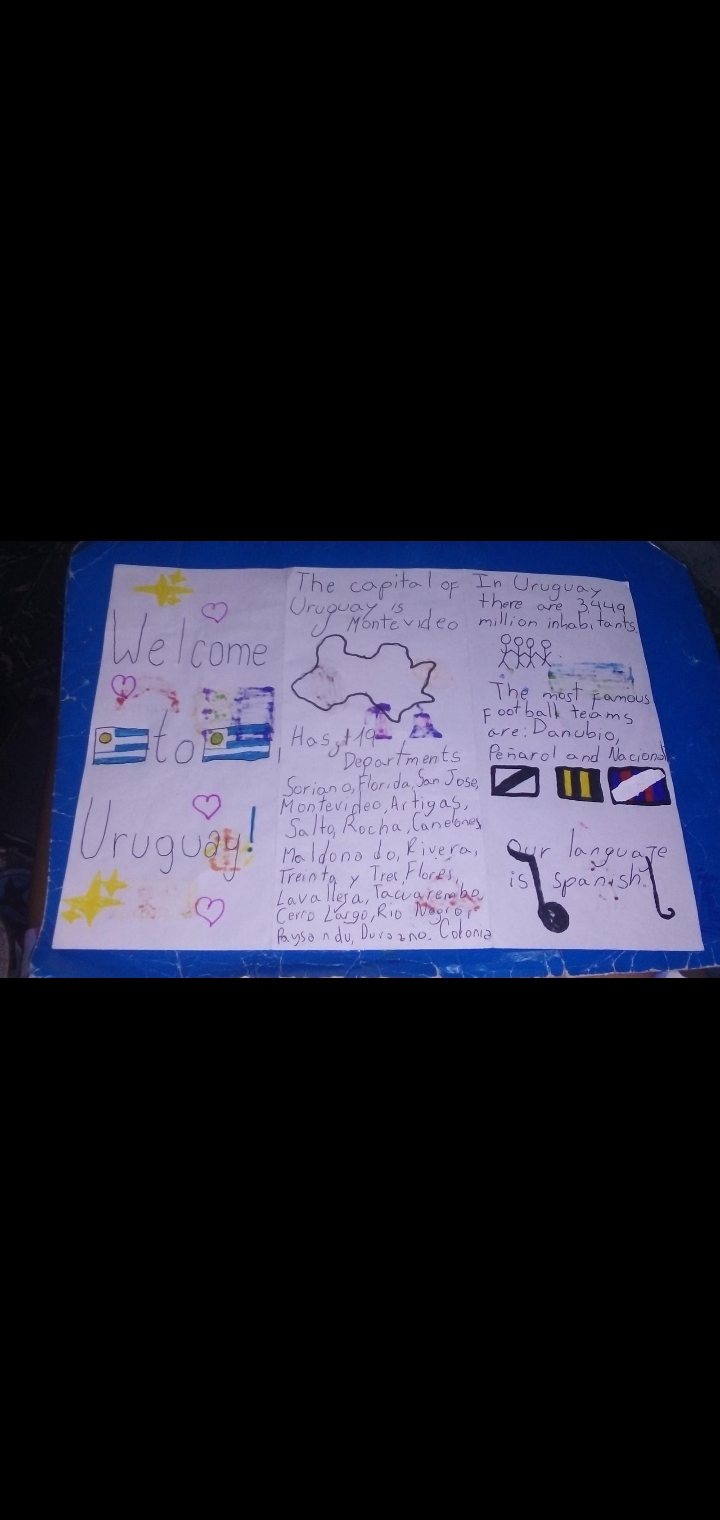 Welcome
to
Uruguay!
The capital of
Uruguay is
Montevideo
Has 19
Departments
Soriano, Florida, San Jose,
Montevideo, Artigas,
Salto, Rocha, Canelones
Maldonado, Rivera,
Treinta y Tres, Flores,
Lavalleja, Tacuarembo,
Cerro Largo, Rio Negro,
Paysandu, Durazno. Colonia
In Uruguay
there are 3,449
million inhabitants.
The most famous
Football teams
are: Danubio,
Peñarol and Nacional
Our language
is spanish.